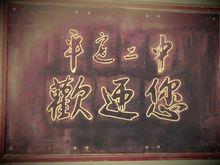 平定二中
歡迎您